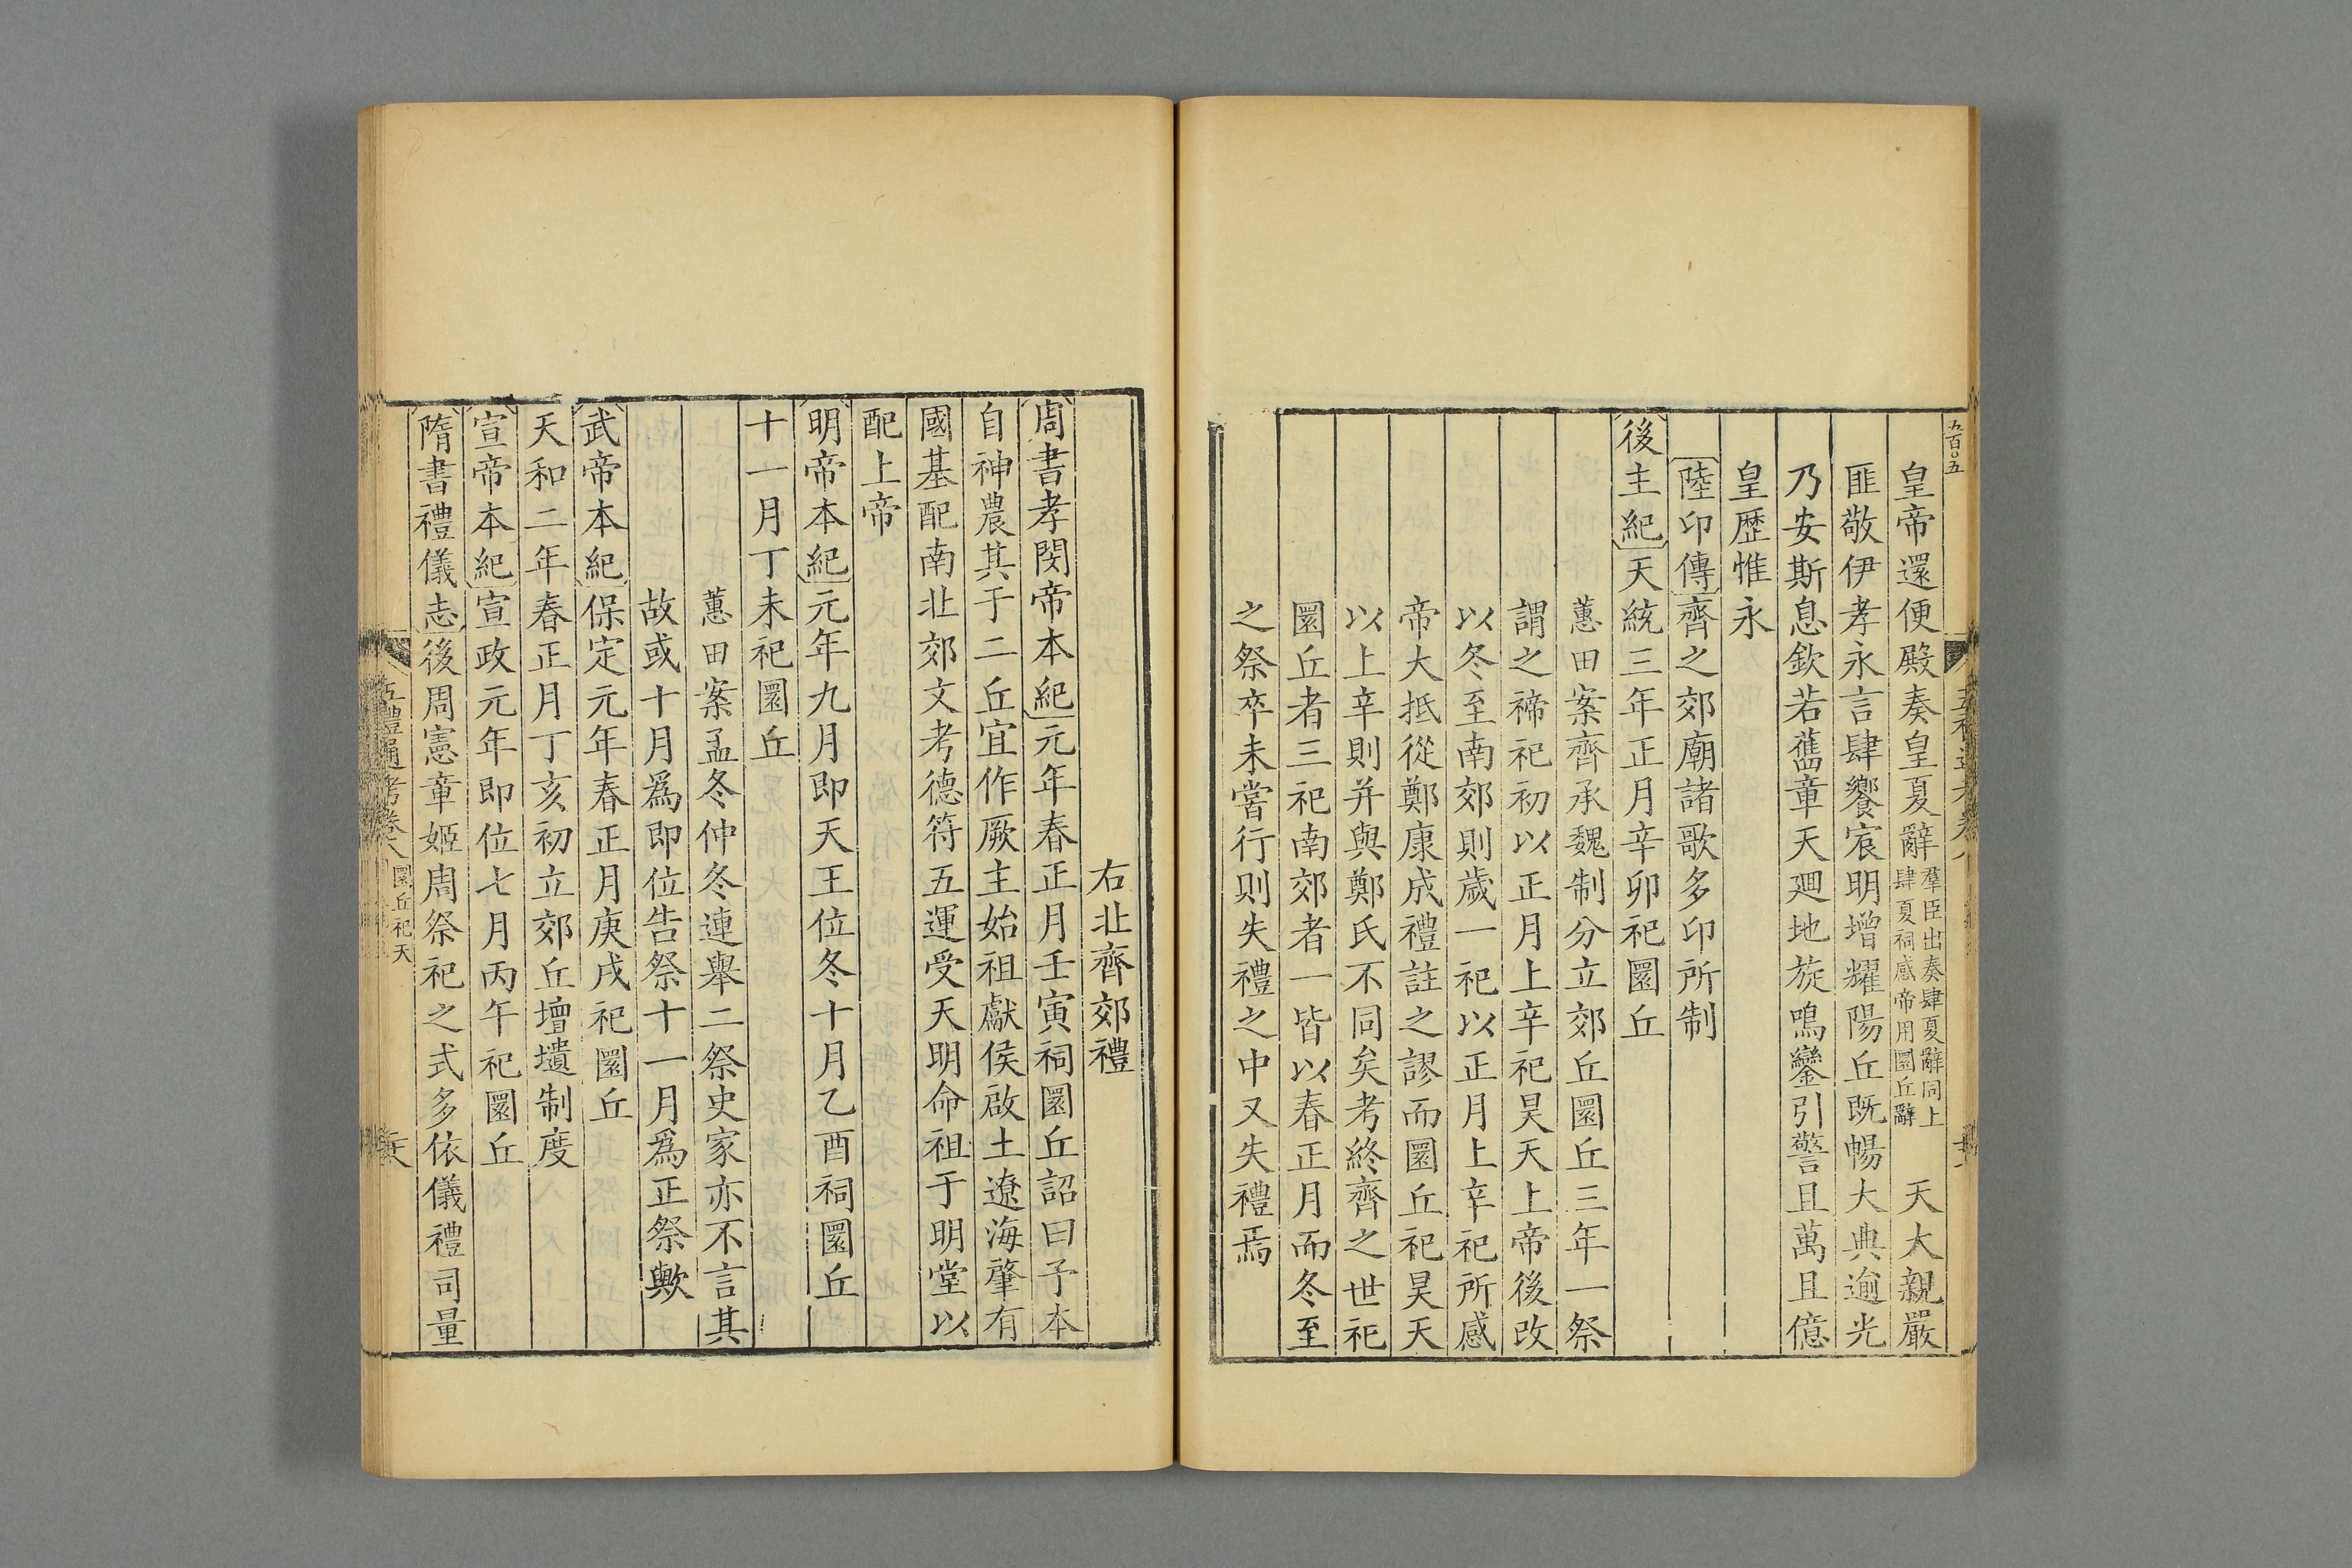 五百〇五
皇帝還便殿奏皇夏辭羣臣出奏肆夏辭同上肆夏祠感帝用圜丘辭 天大親嚴
匪敬伊孝永言肆饗宸明增耀陽丘既暢大典逾光
乃安斯息欽若舊章天廻地旋鳴鑾引警且萬且億
皇歷惟永
陸卬傳齊之郊廟諸歌多卬所制
後主紀天統三年正月辛卯祀圜丘
蕙田案齊承魏制分立郊丘圜丘三年一祭
謂之禘祀初以正月上辛祀昊天上帝後改
以冬至南郊則歲一祀以正月上辛祀所感
帝大抵從鄭康成禮註之謬而圜丘祀昊天
以上辛則并與鄭氏不同矣考終齊之世祀
圜丘者三祀南郊者一皆以春正月而冬至
之祭卒未嘗行則失禮之中又失禮焉
右北齊郊禮
周書孝閔帝本紀元年春正月壬寅祠圜丘詔曰予本
自神農其于二丘宜作厥主始祖獻侯啟土遼海肇有
國基配南北郊文考德符五運受天明命祖于明堂以
配上帝
明帝本紀元年九月即天王位冬十月乙酉祠圜丘
十一月丁未祀圜丘
蕙田案孟冬仲冬連舉二祭史家亦不言其
故或十月爲即位告祭十一月爲正祭歟
武帝本紀保定元年春正月庚戌祀圜丘
天和二年春正月丁亥初立郊丘壇壝制度
宣帝本紀宣政元年即位七月丙午祀圜丘
隋書禮儀志後周憲章姬周祭祀之式多依儀禮司量
五禮通考卷八 圜丘祀天